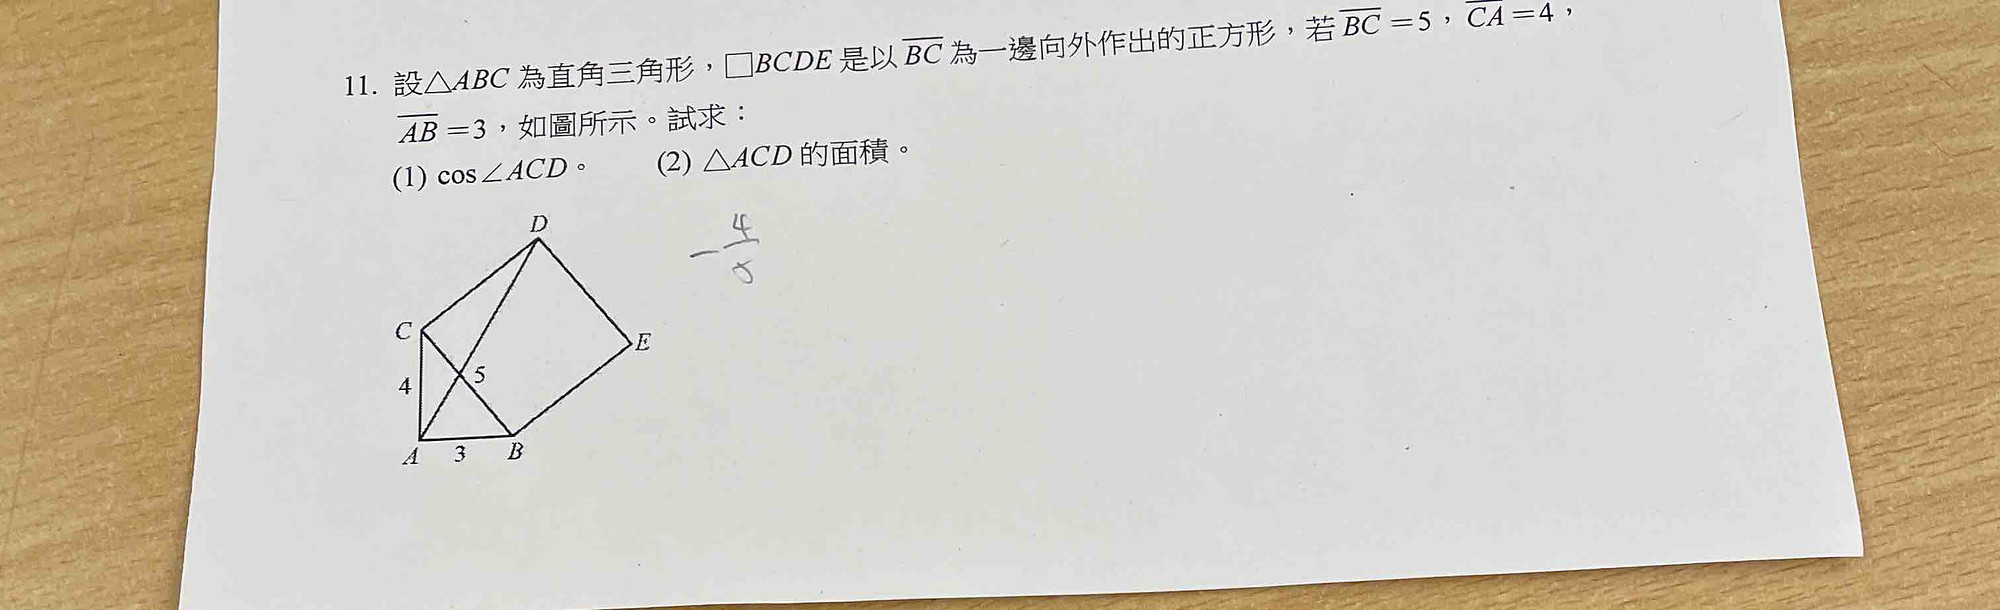 11. 設△ABC 為直角三角形，□BCDE 是以 BC 為一邊向外作出的正方形，若 BC＝5，CA＝4，
AB＝3，如圖所示。試求：
(1) cos∠ACD。 (2) △ACD 的面積。
D
C
E
4
5
A 3 B